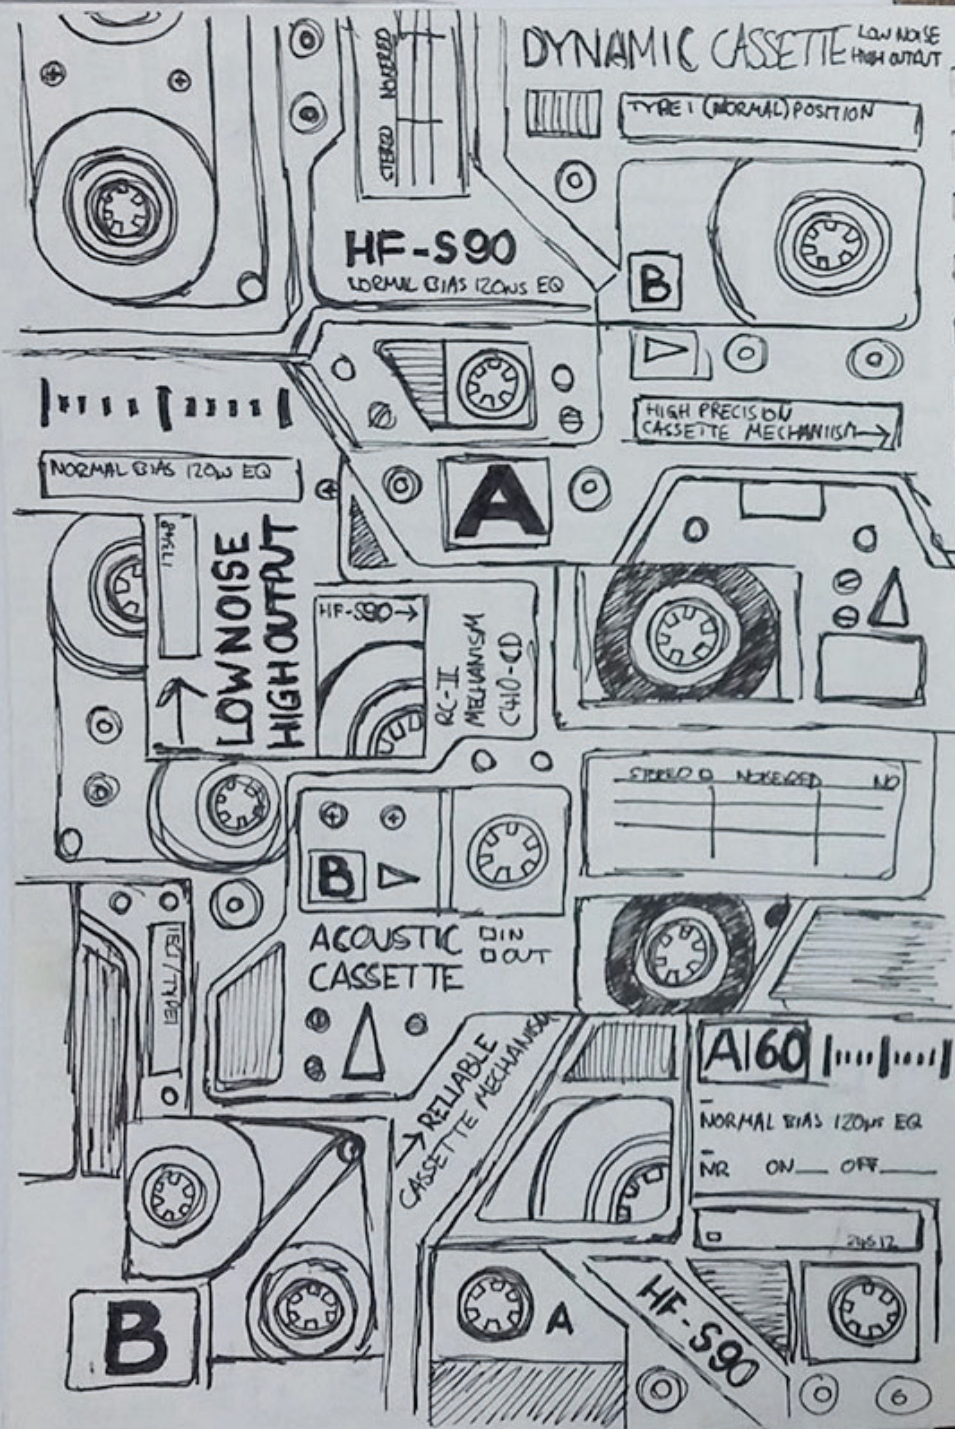 DYNAMIC CASSETTE LOW NOISE
HIGH OUTPUT
STEREO NOISERED
TYPE I (NORMAL) POSITION
HF-S90
NORMAL BIAS 120µs EQ
B
HIGH PRECISION
CASSETTE MECHANIISM
NORMAL BIAS 120µs EQ
A
LOW NOISE
HIGH OUTPUT
HF-S90
RC-II
MECHANISM
C410-CD
STEREO NOISERED NO
B
ACOUSTIC
CASSETTE
IN
OUT
IEC I / TYPE I
RELIABLE
CASSETTE MECHANISM
AI60
NORMAL BIAS 120µs EQ
NR ON OFF
24512
B
A
HF-S90
6